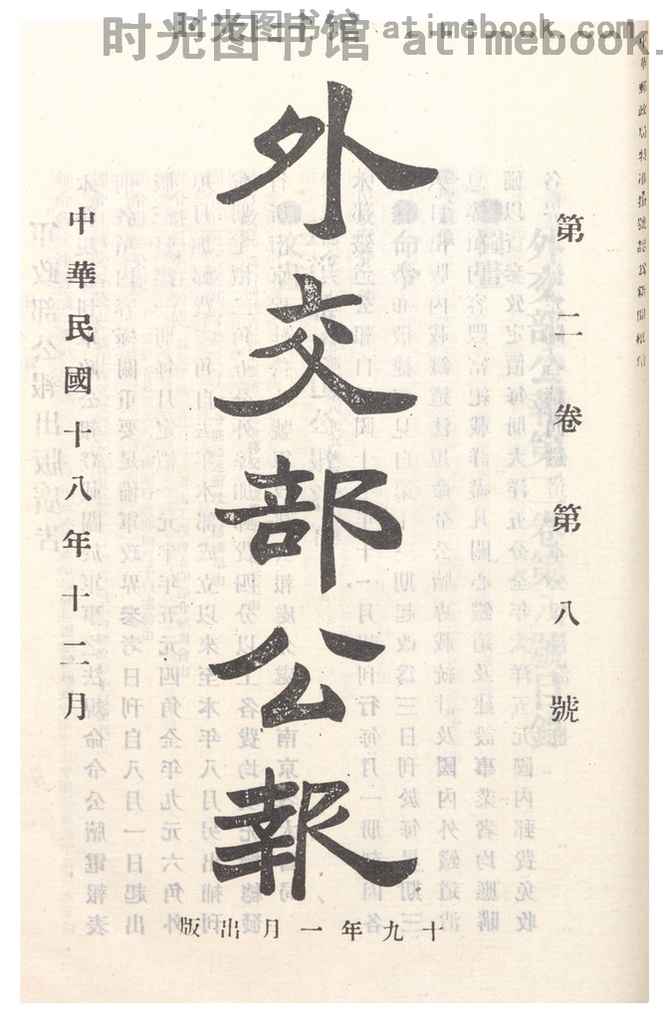 时光图书馆 atimebook.com
时光图书馆 atimebook.
中華郵政局特准掛號認爲新聞紙類
第二卷第八號
外交部公報
中華民國十八年十二月
十九年一月出版